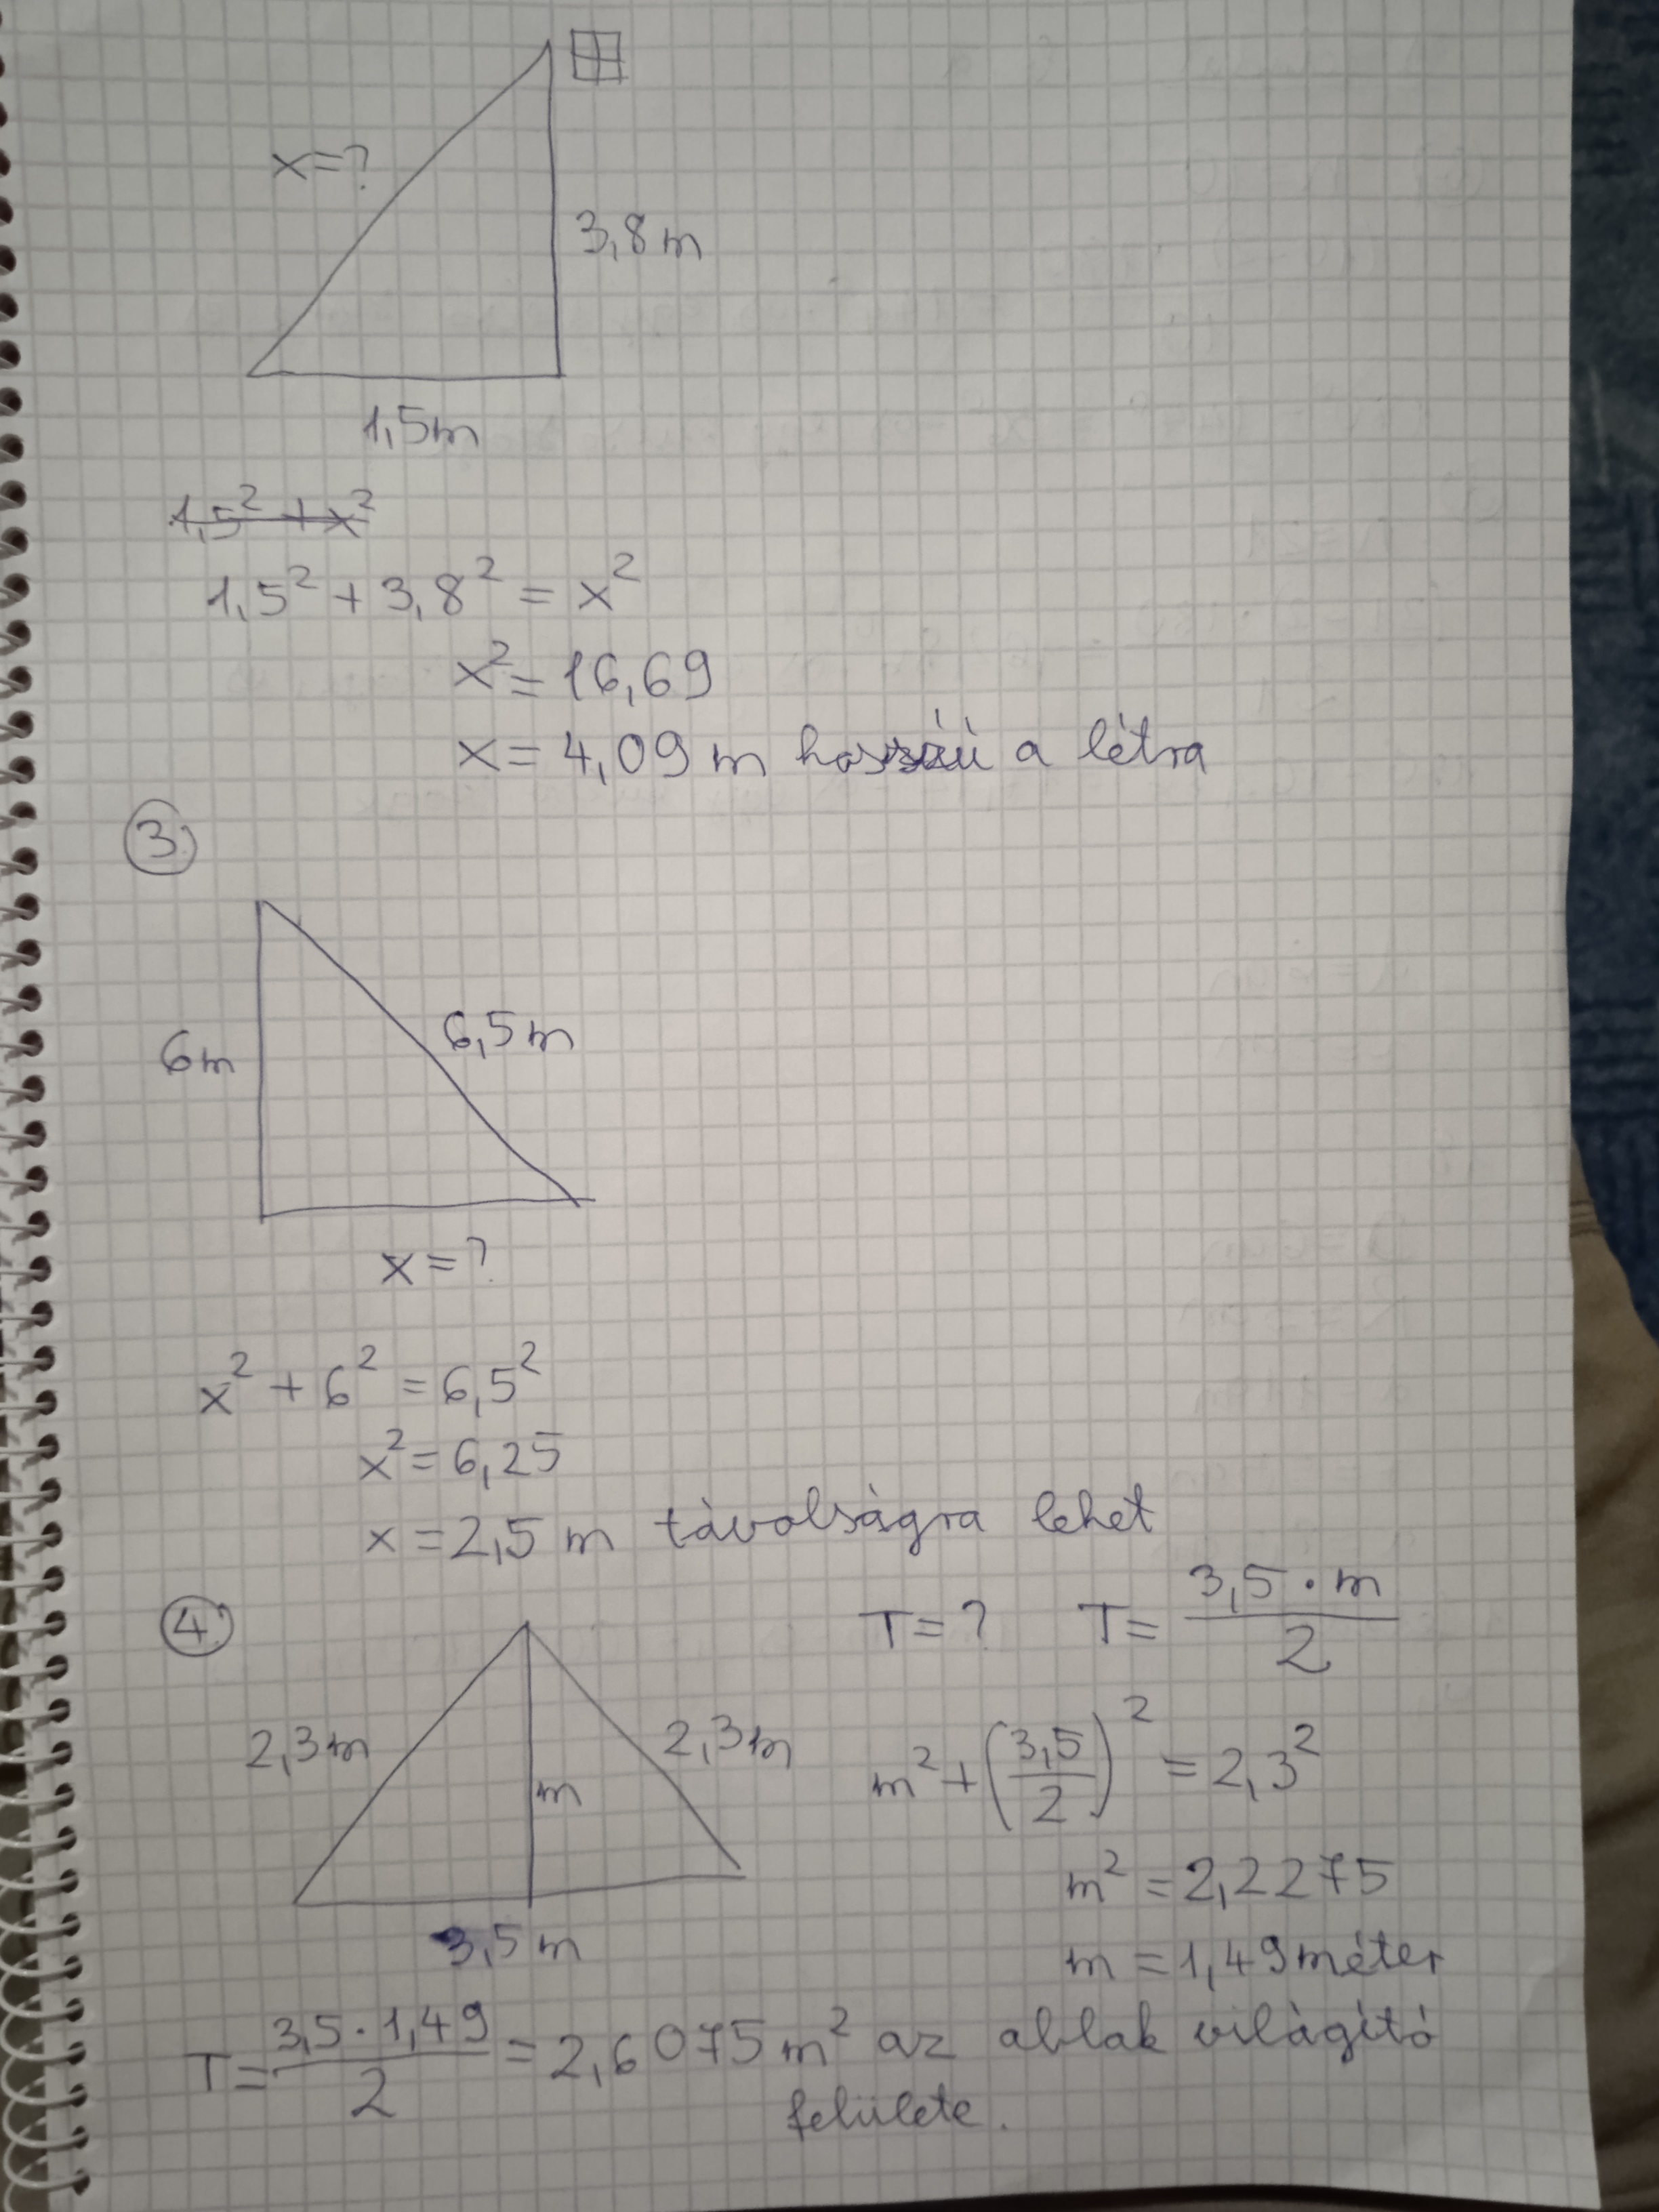 x=?
3,8m
1,5m
1,5² + x²
1,5² + 3,8² = x²
x² = 16,69
x = 4,09 m hosszú a létra
3.
6m
6,5m
x = ?
x² + 6² = 6,5²
x² = 6,25
x = 2,5 m távolságra lehet
4.
T = ? T = 3,5 · m / 2
2,3m
2,3m
m
3,5 m
m² + (3,5/2)² = 2,3²
m² = 2,2275
m = 1,49 méter
T = 3,5 · 1,49 / 2 = 2,6075 m² az ablak világító
felülete.